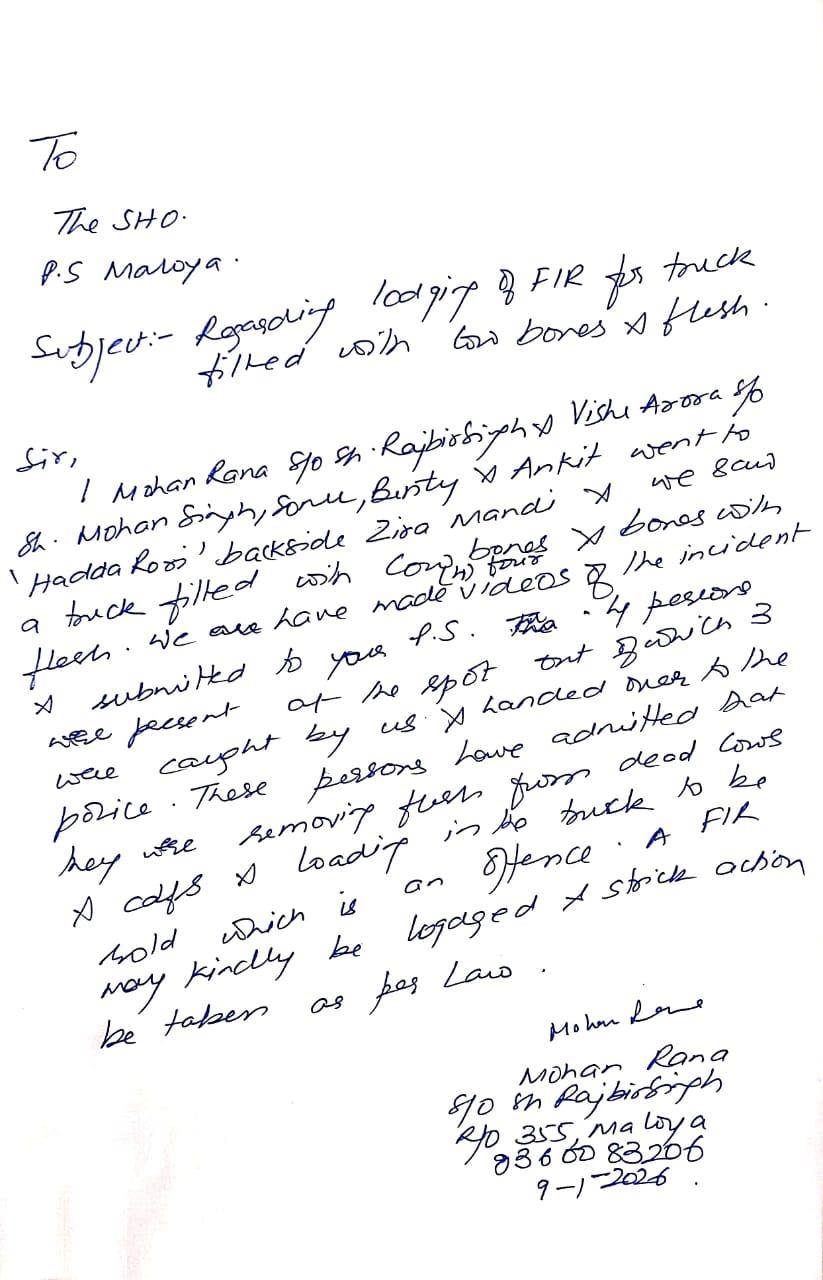 To
The SHO.
P.S Maloya.
Subject:- Regarding lodging of FIR for truck
filled with Cow bones & flesh.
Sir,
I Mohan Rana S/o Sh. Rajbir Singh & Vishu Arora S/o
Sh. Mohan Singh, Sonu, Binty & Ankit went to
'Hadda Rori' backside Zira Mandi & we saw
a truck filled with Cow bones & bones with
flesh. We have made (4) four videos of the incident
& submitted to your P.S. 4 persons
were present at the spot out of which 3
were caught by us & handed over to the
police. These persons have admitted that
they were removing flesh from dead Cows
& calfs & loading in the truck to be
sold which is an offence. A FIR
may kindly be logdged & strick action
be taken as per Law.
Mohan Rana
Mohan Rana
S/o Sh Rajbir Singh
R/o 355, Maloya
83600 83206
9-1-2026.